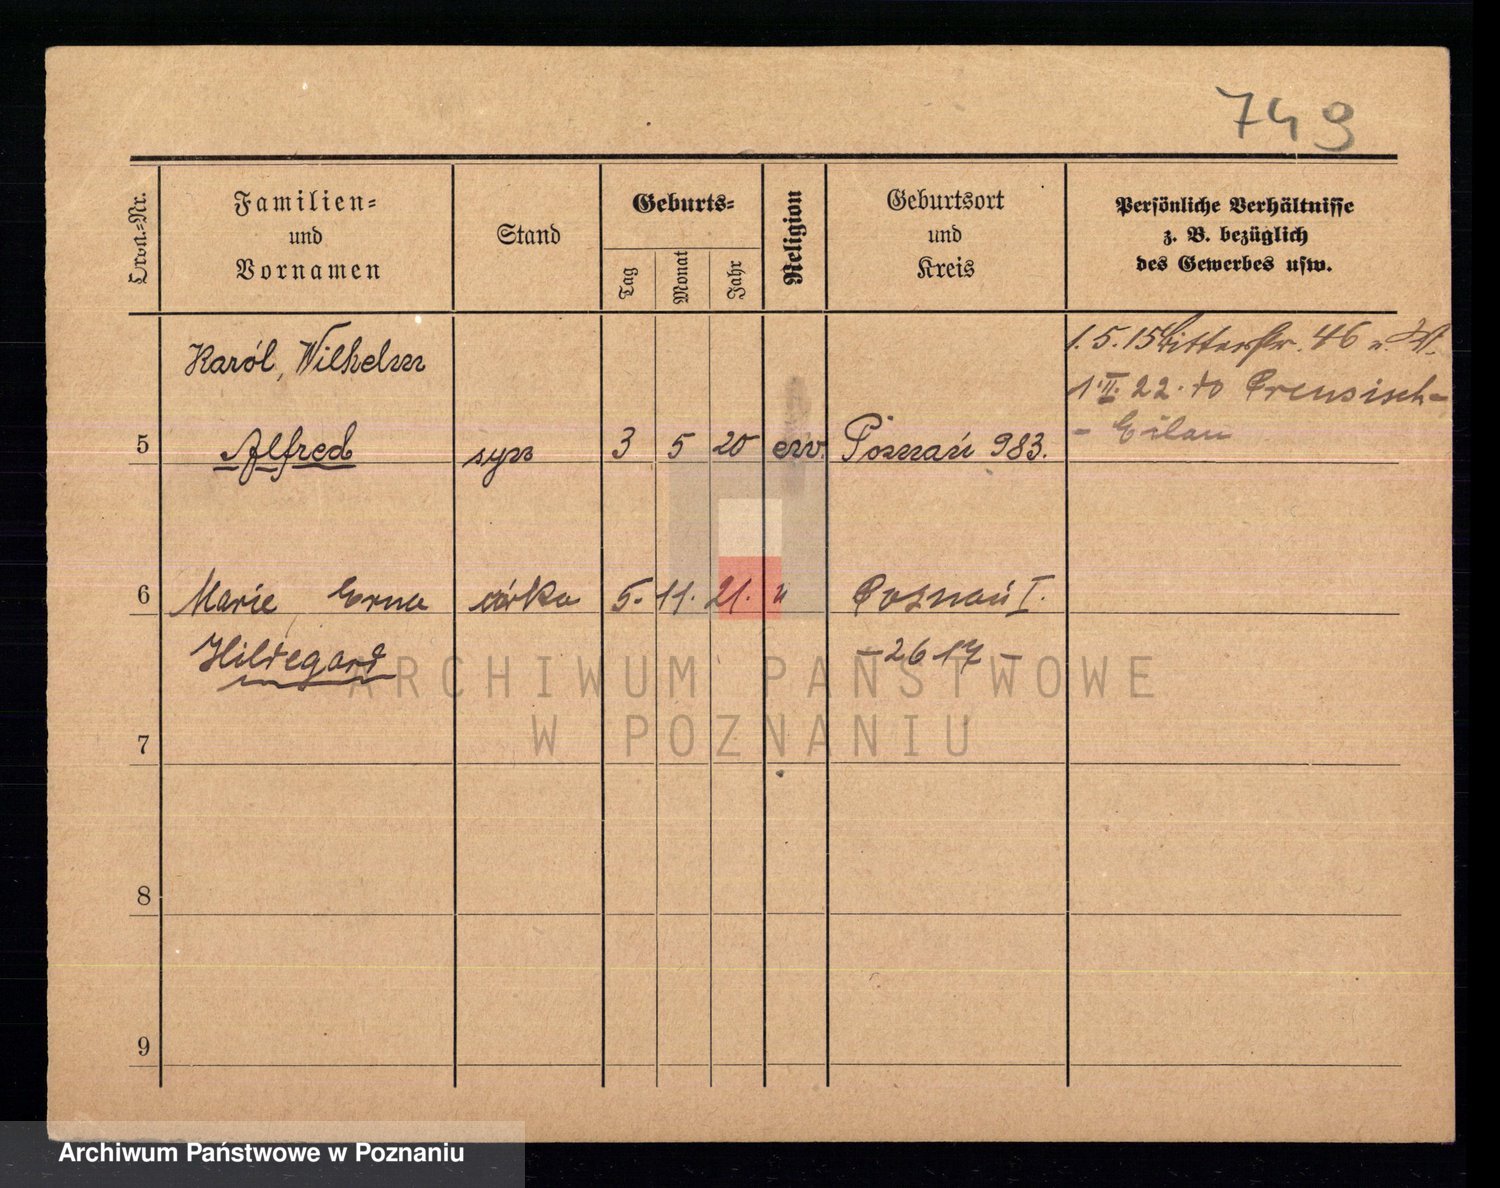 749
Ordn.-Nr.
Familien-
und
Vornamen
Stand
Geburts-
Tag
Monat
Jahr
Religion
Geburtsort
und
Kreis
Persönliche Verhältnisse
z. B. bezüglich
des Gewerbes usw.
Karól, Wilhelm
1.5.15 Bitterstr. 46 u. W.
1.II.22. do Preusisch-
- Eilau
5 Alfred syn 3 5 20 ew. Poznań 983.
6 Marie Erna córka 5. 11. 21. " Poznań I.
Hildegard - 2617 -
ARCHIWUM PAŃSTWOWE
W POZNANIU
7
8
9
Archiwum Państwowe w Poznaniu